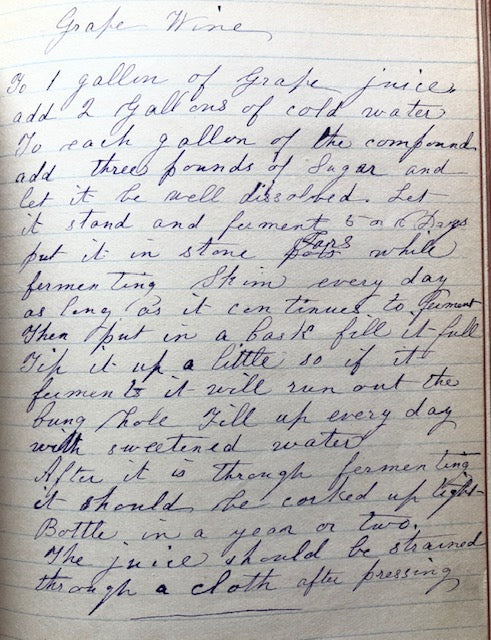 Grape Wine
To 1 gallon of Grape juice,
add 2 Gallons of cold water
To each gallon of the compound
add three pounds of Sugar and
let it be well dissolved. Let
it stand and ferment 5 or 6 Days
put it in stone Jars while
fermenting Skim every day
as long as it continues to ferment
Then put in a cask fill it full
Tip it up a little so if it
ferments it will run out the
bung hole Fill up every day
with sweetened water
After it is through fermenting
it should be corked up tight
Bottle in a year or two.
The juice should be strained
through a cloth after pressing